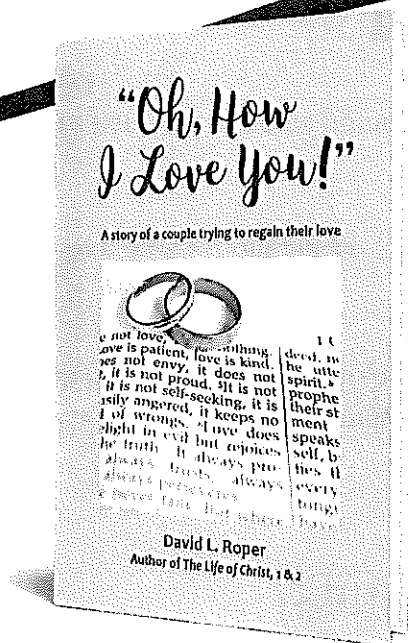 “Oh, How
I Love You!”
A story of a couple trying to regain their love
not love, nothing.
Love is patient, love is kind.
not envy, it does not
it is not proud. It is not
it is not self-seeking, it is
easily angered, it keeps no
of wrongs. Love does
delight in evil but rejoices
the truth. It always pro-
always trusts, always
always perseveres.
never fails. But where
deed, no
he utte
spirit.
prophe
their st
ment
speaks
self, b
ties th
every
tongu
have
David L. Roper
Author of The Life of Christ, 1 & 2